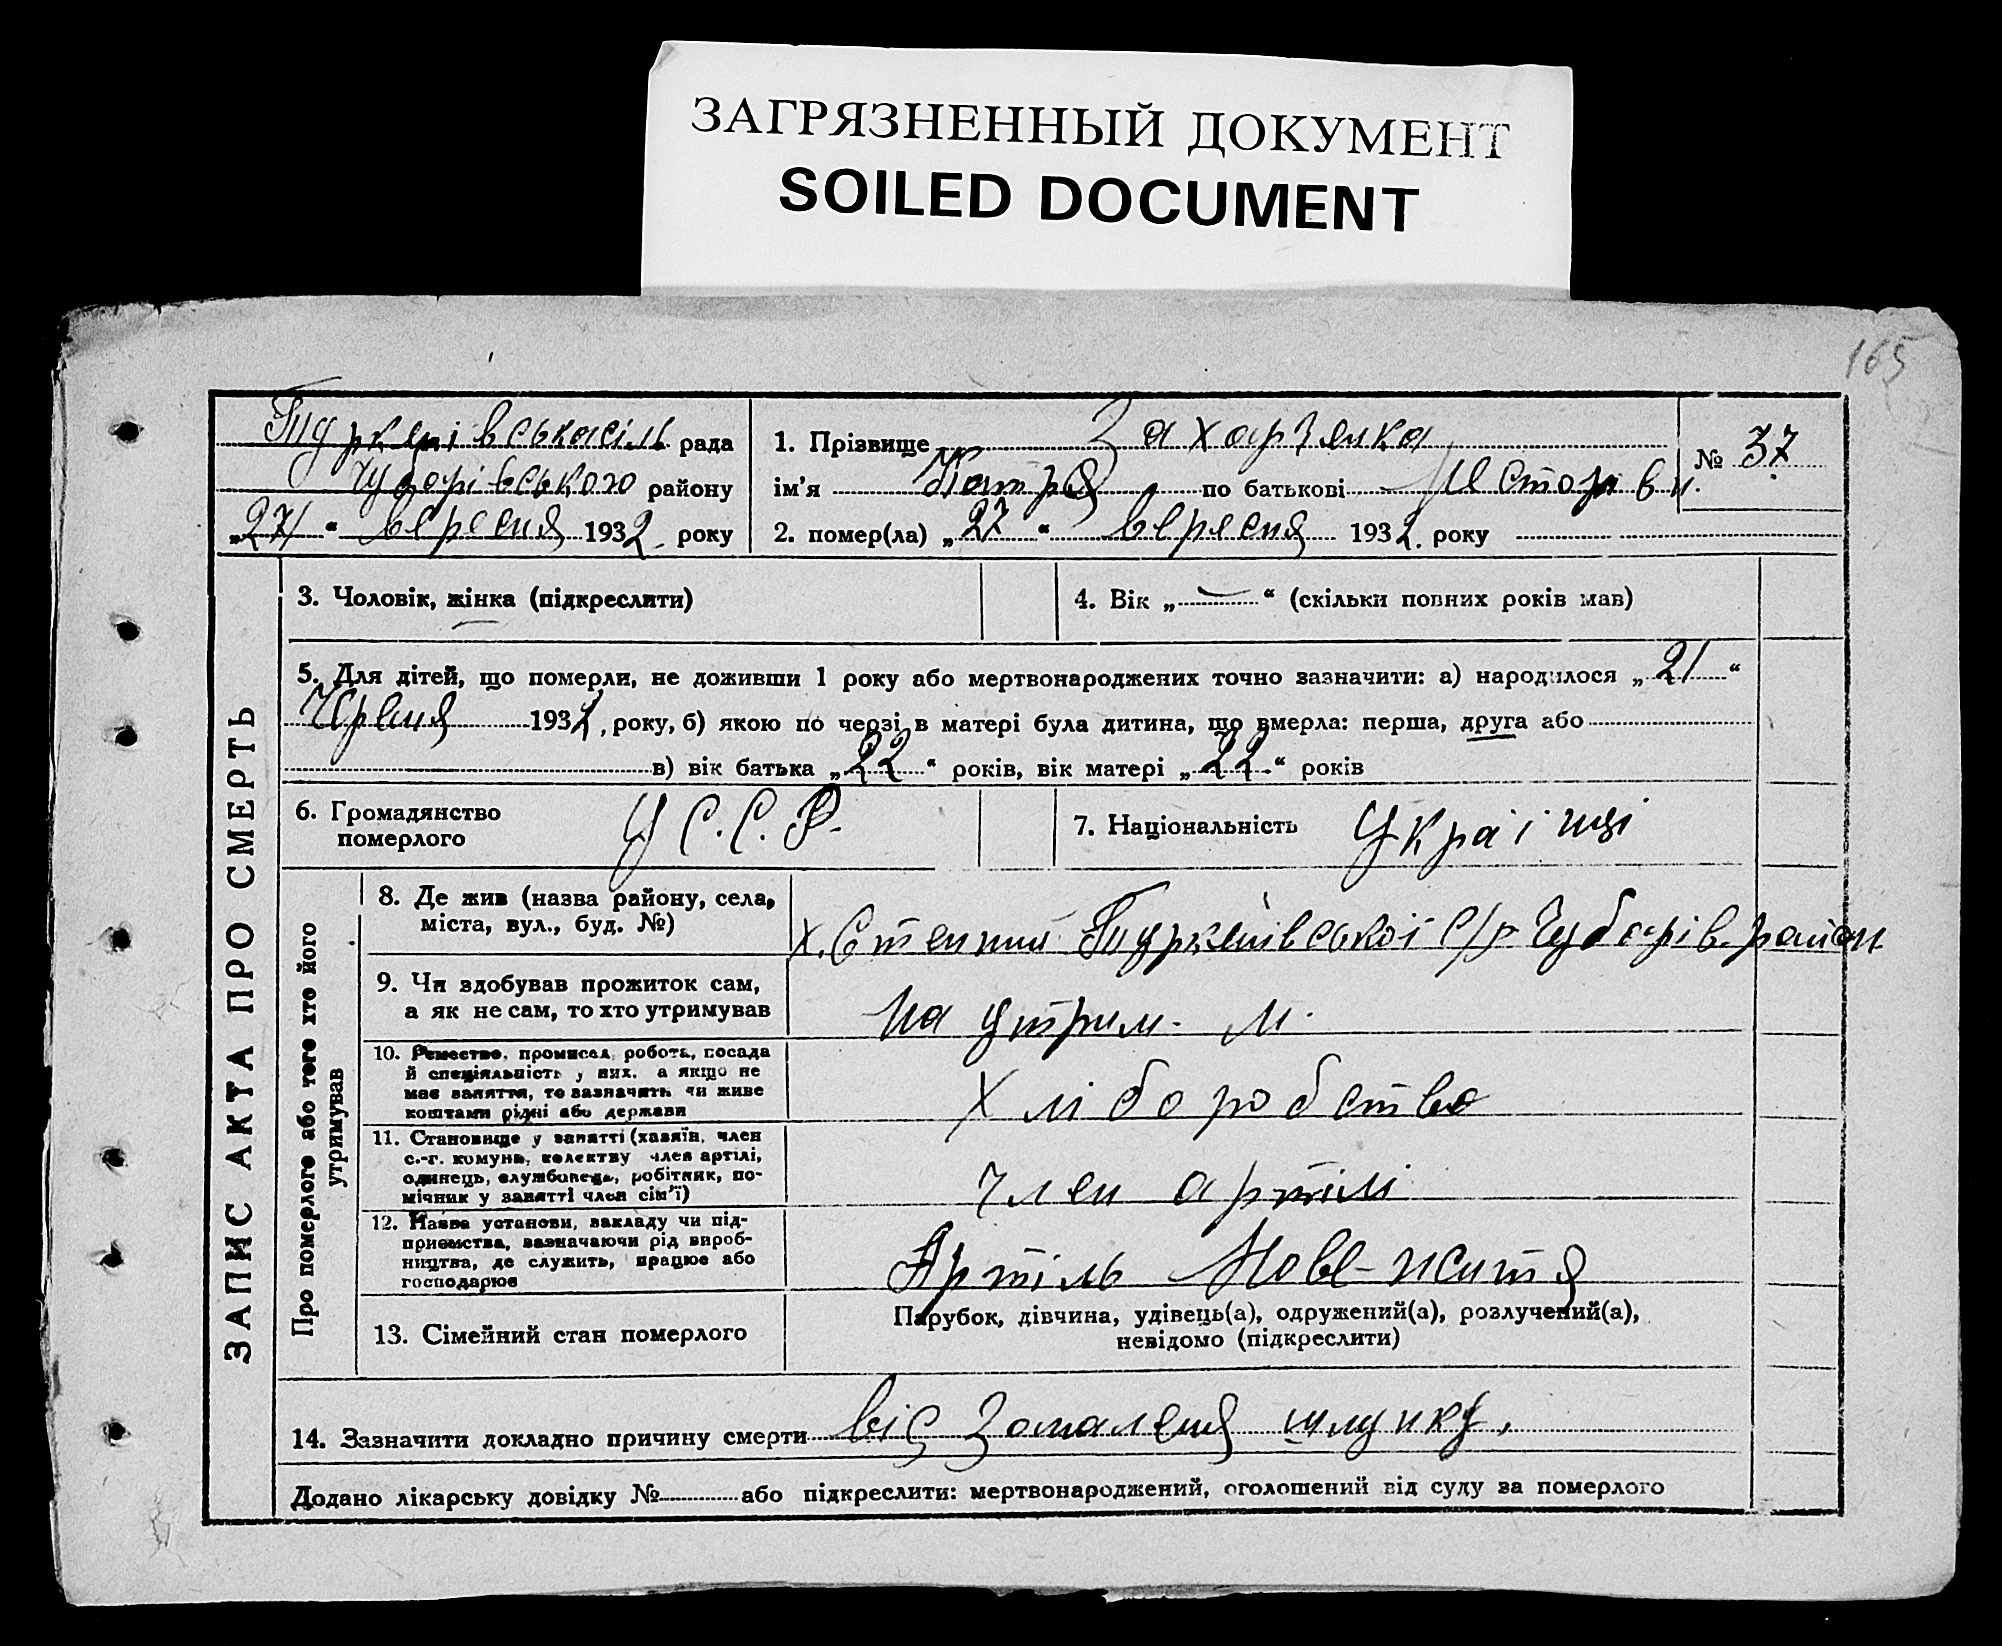 ЗАГРЯЗНЕННЫЙ ДОКУМЕНТ
SOILED DOCUMENT
165
Туркенівська сіль рада
Чубарівського району
„27“ вересня 1932 року
1. Прізвище Захарченко
ім'я Катря по батькові Несторівн.
№ 37
2. помер(ла) „27“ вересня 1932. року
ЗАПИС АКТА ПРО СМЕРТЬ
3. Чоловік, жінка (підкреслити)
4. Вік „—“ (скільки повних років мав)
5. Для дітей, що померли, не доживши 1 року або мертвонароджених точно зазначити: а) народилося „21“
Червня 1932, року, б) якою по черзі в матері була дитина, що вмерла: перша, друга або
в) вік батька „22“ років, вік матері „22“ років
6. Громадянство
померлого
У С. С. Р.
7. Національність Украінці
Про померлого або того хто його
утримував
8. Де жив (назва району, села,
міста, вул., буд. №)
х. Степний Туркенівської с/р Чубарів. район
9. Чи здобував прожиток сам,
а як не сам, то хто утримував
На утрим. м.
10. Ремество, промисел, робота, посада
й спеціяльність у них. а якщо не
має заняття, то зазначить чи живе
коштами рідні або держави
Хліборобство
11. Становище у занятті (хазяїн, член
с.-г. комуни, колективу член артілі,
одинець, службовець, робітник, по-
мічник у занятті член сім'ї)
член артілі
12. Назва установи, закладу чи під-
приємства, зазначаючи рід вироб-
ництва, де служить, працює або
господарює
Артіль Нове-життя
13. Сімейний стан померлого
Парубок, дівчина, удівець(а), одружений(а), розлучений(а),
невідомо (підкреслити)
14. Зазначити докладно причину смерти від запаленя шлунку.
Додано лікарську довідку № або підкреслити: мертвонароджений, оголошений від суду за померлого